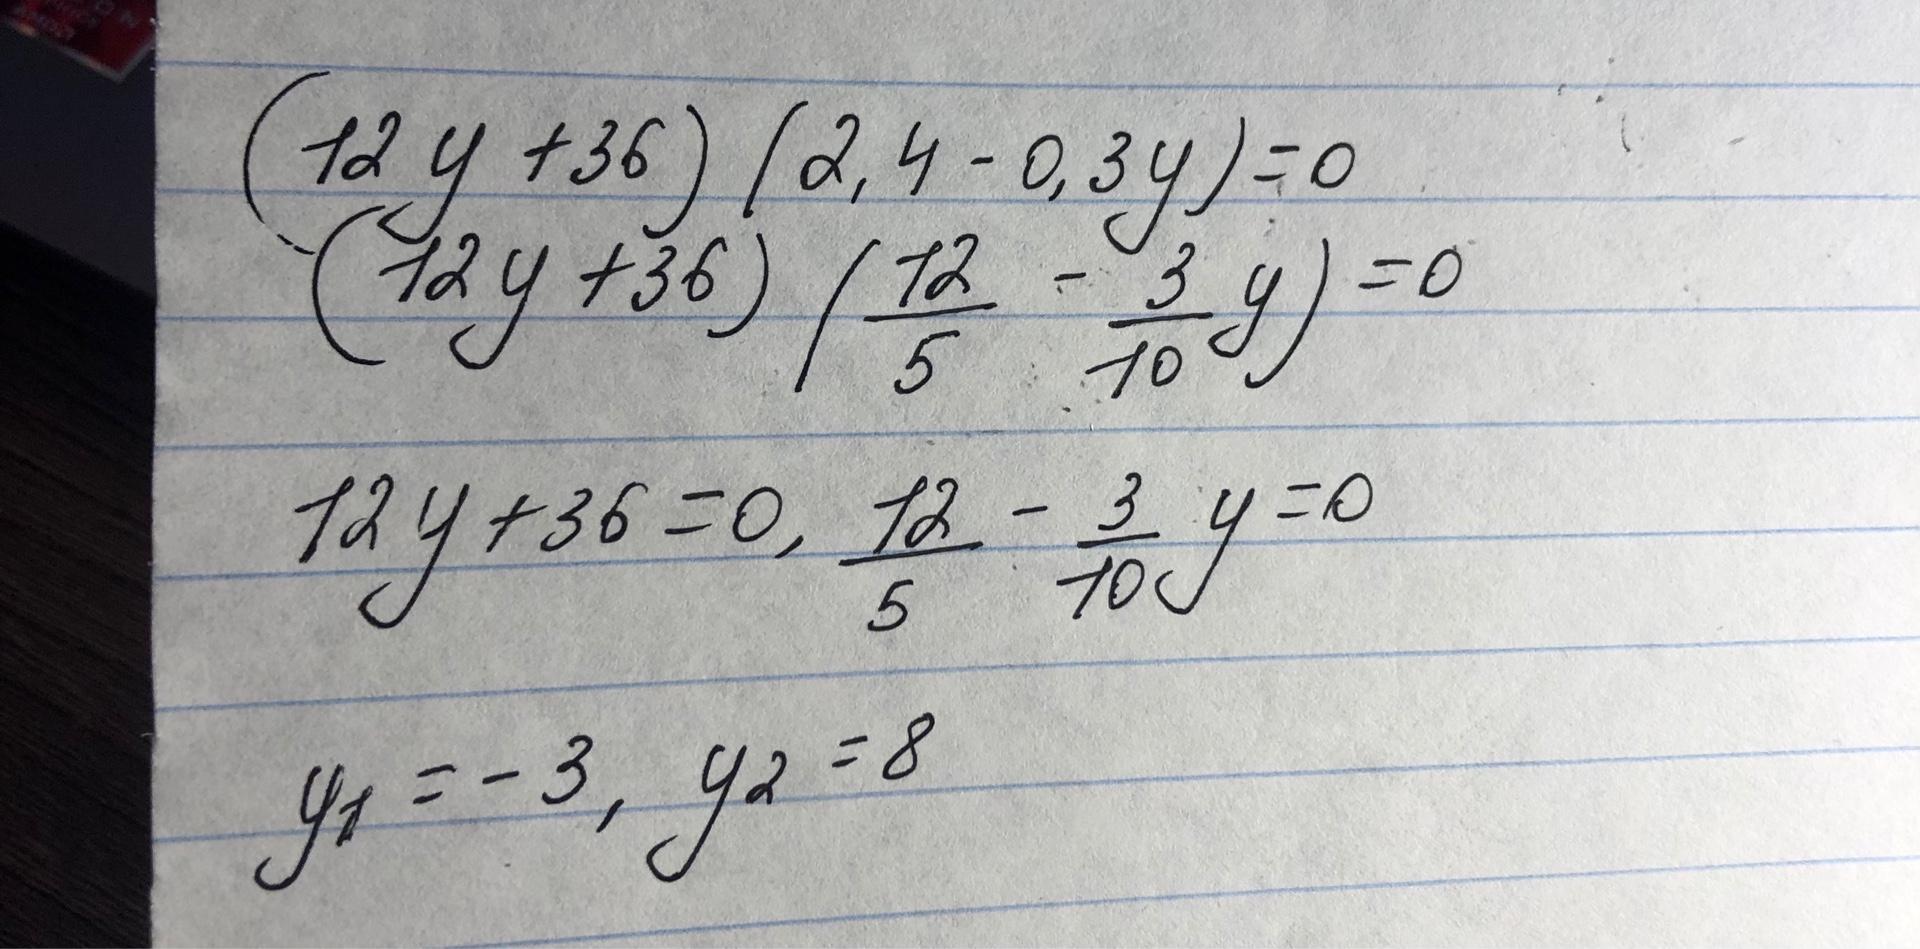 (12y+36)(2,4-0,3y)=0
(12y+36)(12/5 - 3/10 y)=0
12y+36=0, 12/5 - 3/10 y=0
y₁=-3, y₂=8